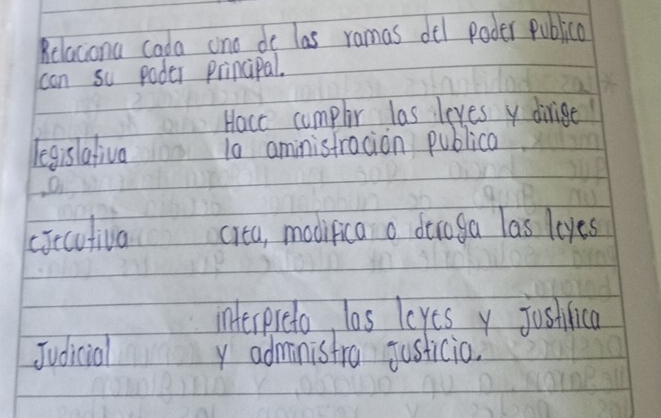 Relaciona cada una de las ramas del poder publico
con su poder principal.
Hace cumplir las leyes y dirige
legislativa la aministración publica
ejecutiva crea, modifica o deroga las leyes
interpreta, las leyes y justifica
Judicial y administra justicia.